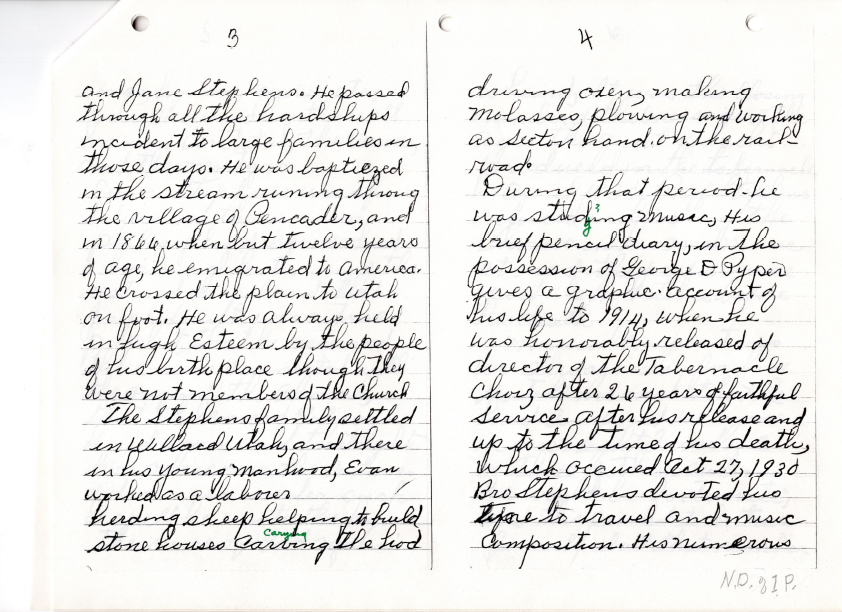 3
and Jane Stephens. He passed
through all the hardships
incident to large families in
those days. He was baptiezed
in the stream runing throug
the village of Pencader, and
in 1866, when but twelve years
of age, he emigrated to America.
He crossed the plain to Utah
on foot. He was always held
in high Esteem by the people
of his birth place though they
were not members of the Church
The Stephens family settled
in Willard Utah, and there
in his young manhood, Evan
worked as a laborer
herding sheep helping to build
carying
stone houses Carving the hod
4
driving oxen, making
Molasses, plowing and working
as secton hand. on the rail-
road.
During that period he
was studing music, His
brief pencil diary, in the
possession of George D Pyper
gives a graphic account of
his life to 1914, when he
was honorably released of
director of the Tabernacle
Choir after 26 years of faithful
service after his release and
up to the time of his death,
which occured Oct 27, 1930
Bro Stephens devoted his
time to travel and music
Composition. His numerous
N.D. of I.P.